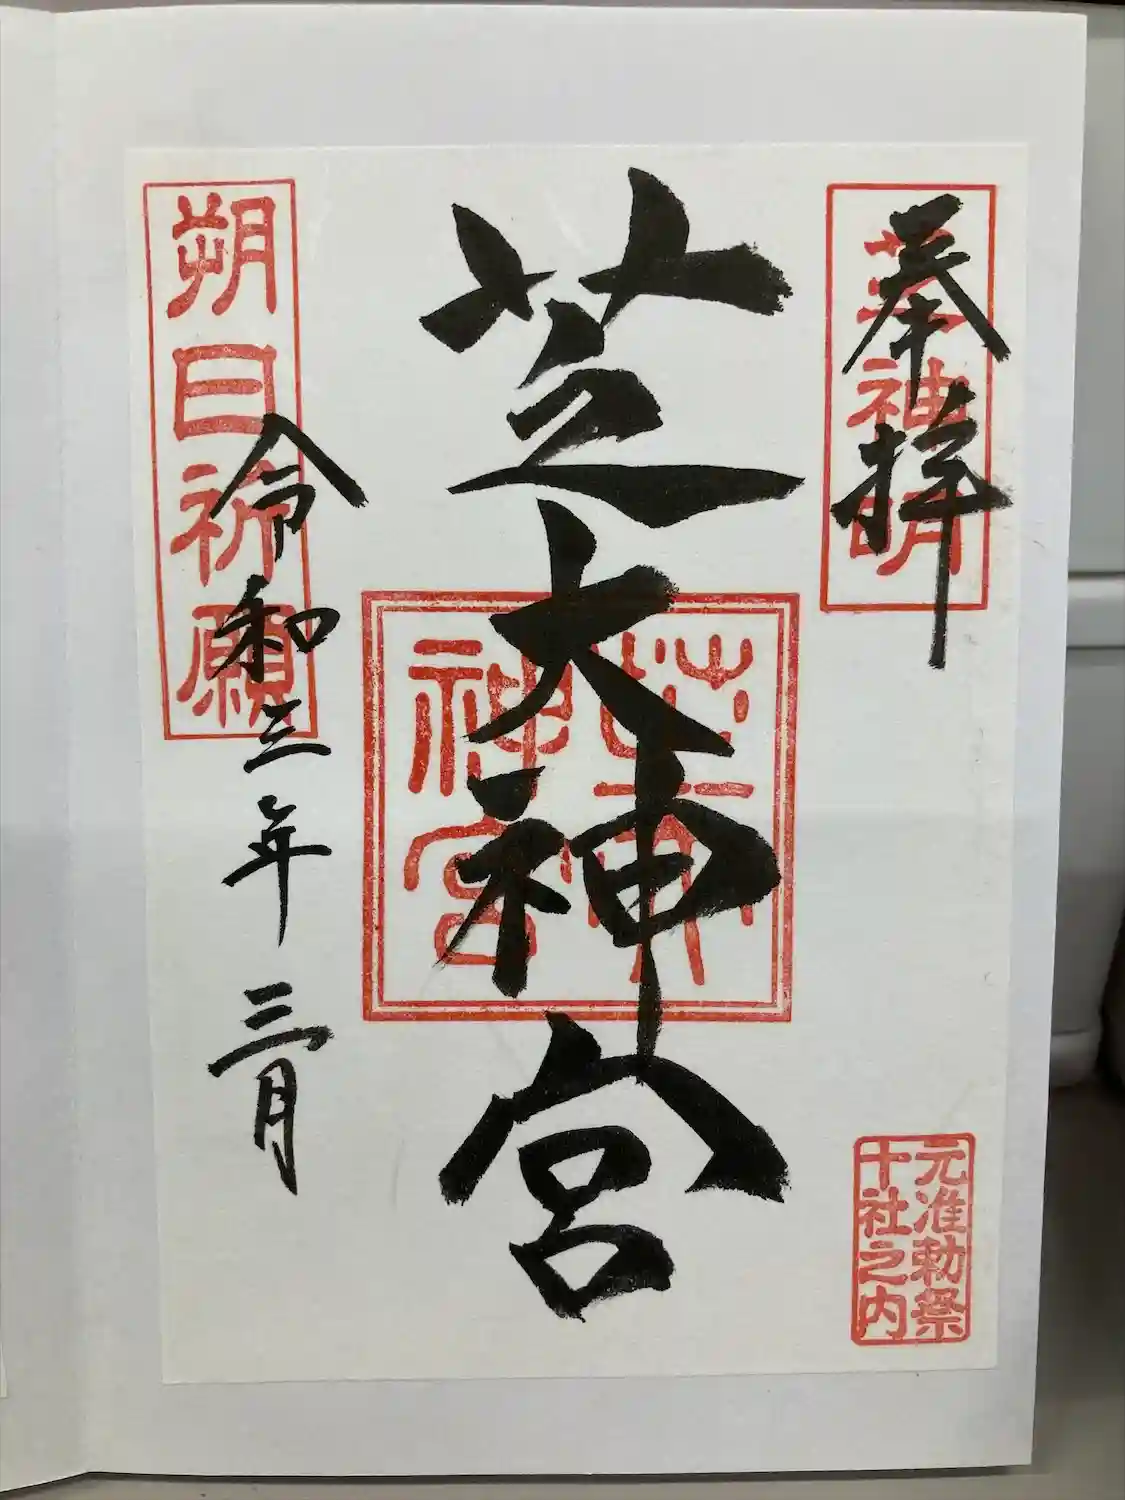 奉拝
芝神明
元准勅祭
十社之内
芝大神宮
芝大
神宮
朔日祈願
令和三年三月